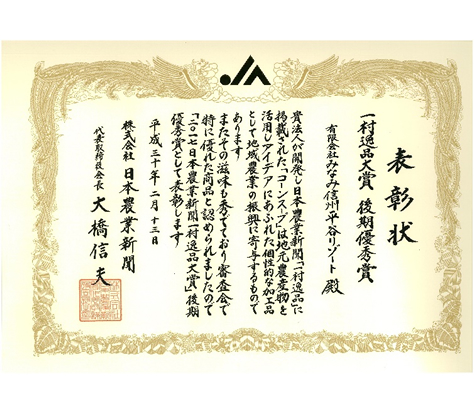 表彰状
一村逸品大賞 後期優秀賞
有限会社みなみ信州平谷リゾート 殿
貴法人が開発し日本農業新聞「一村逸品」に
掲載された「コーンスープ」は地元農産物を
活用しアイデアにあふれた個性的な加工品
として地域農業の振興に寄与するもので
あります
またその滋味も秀でており審査会で
特に優れた商品と認められましたので
「二〇一七日本農業新聞一村逸品大賞」後期
優秀賞として表彰します
平成三十年二月十三日
株式会社 日本農業新聞
代表取締役会長 大橋信夫